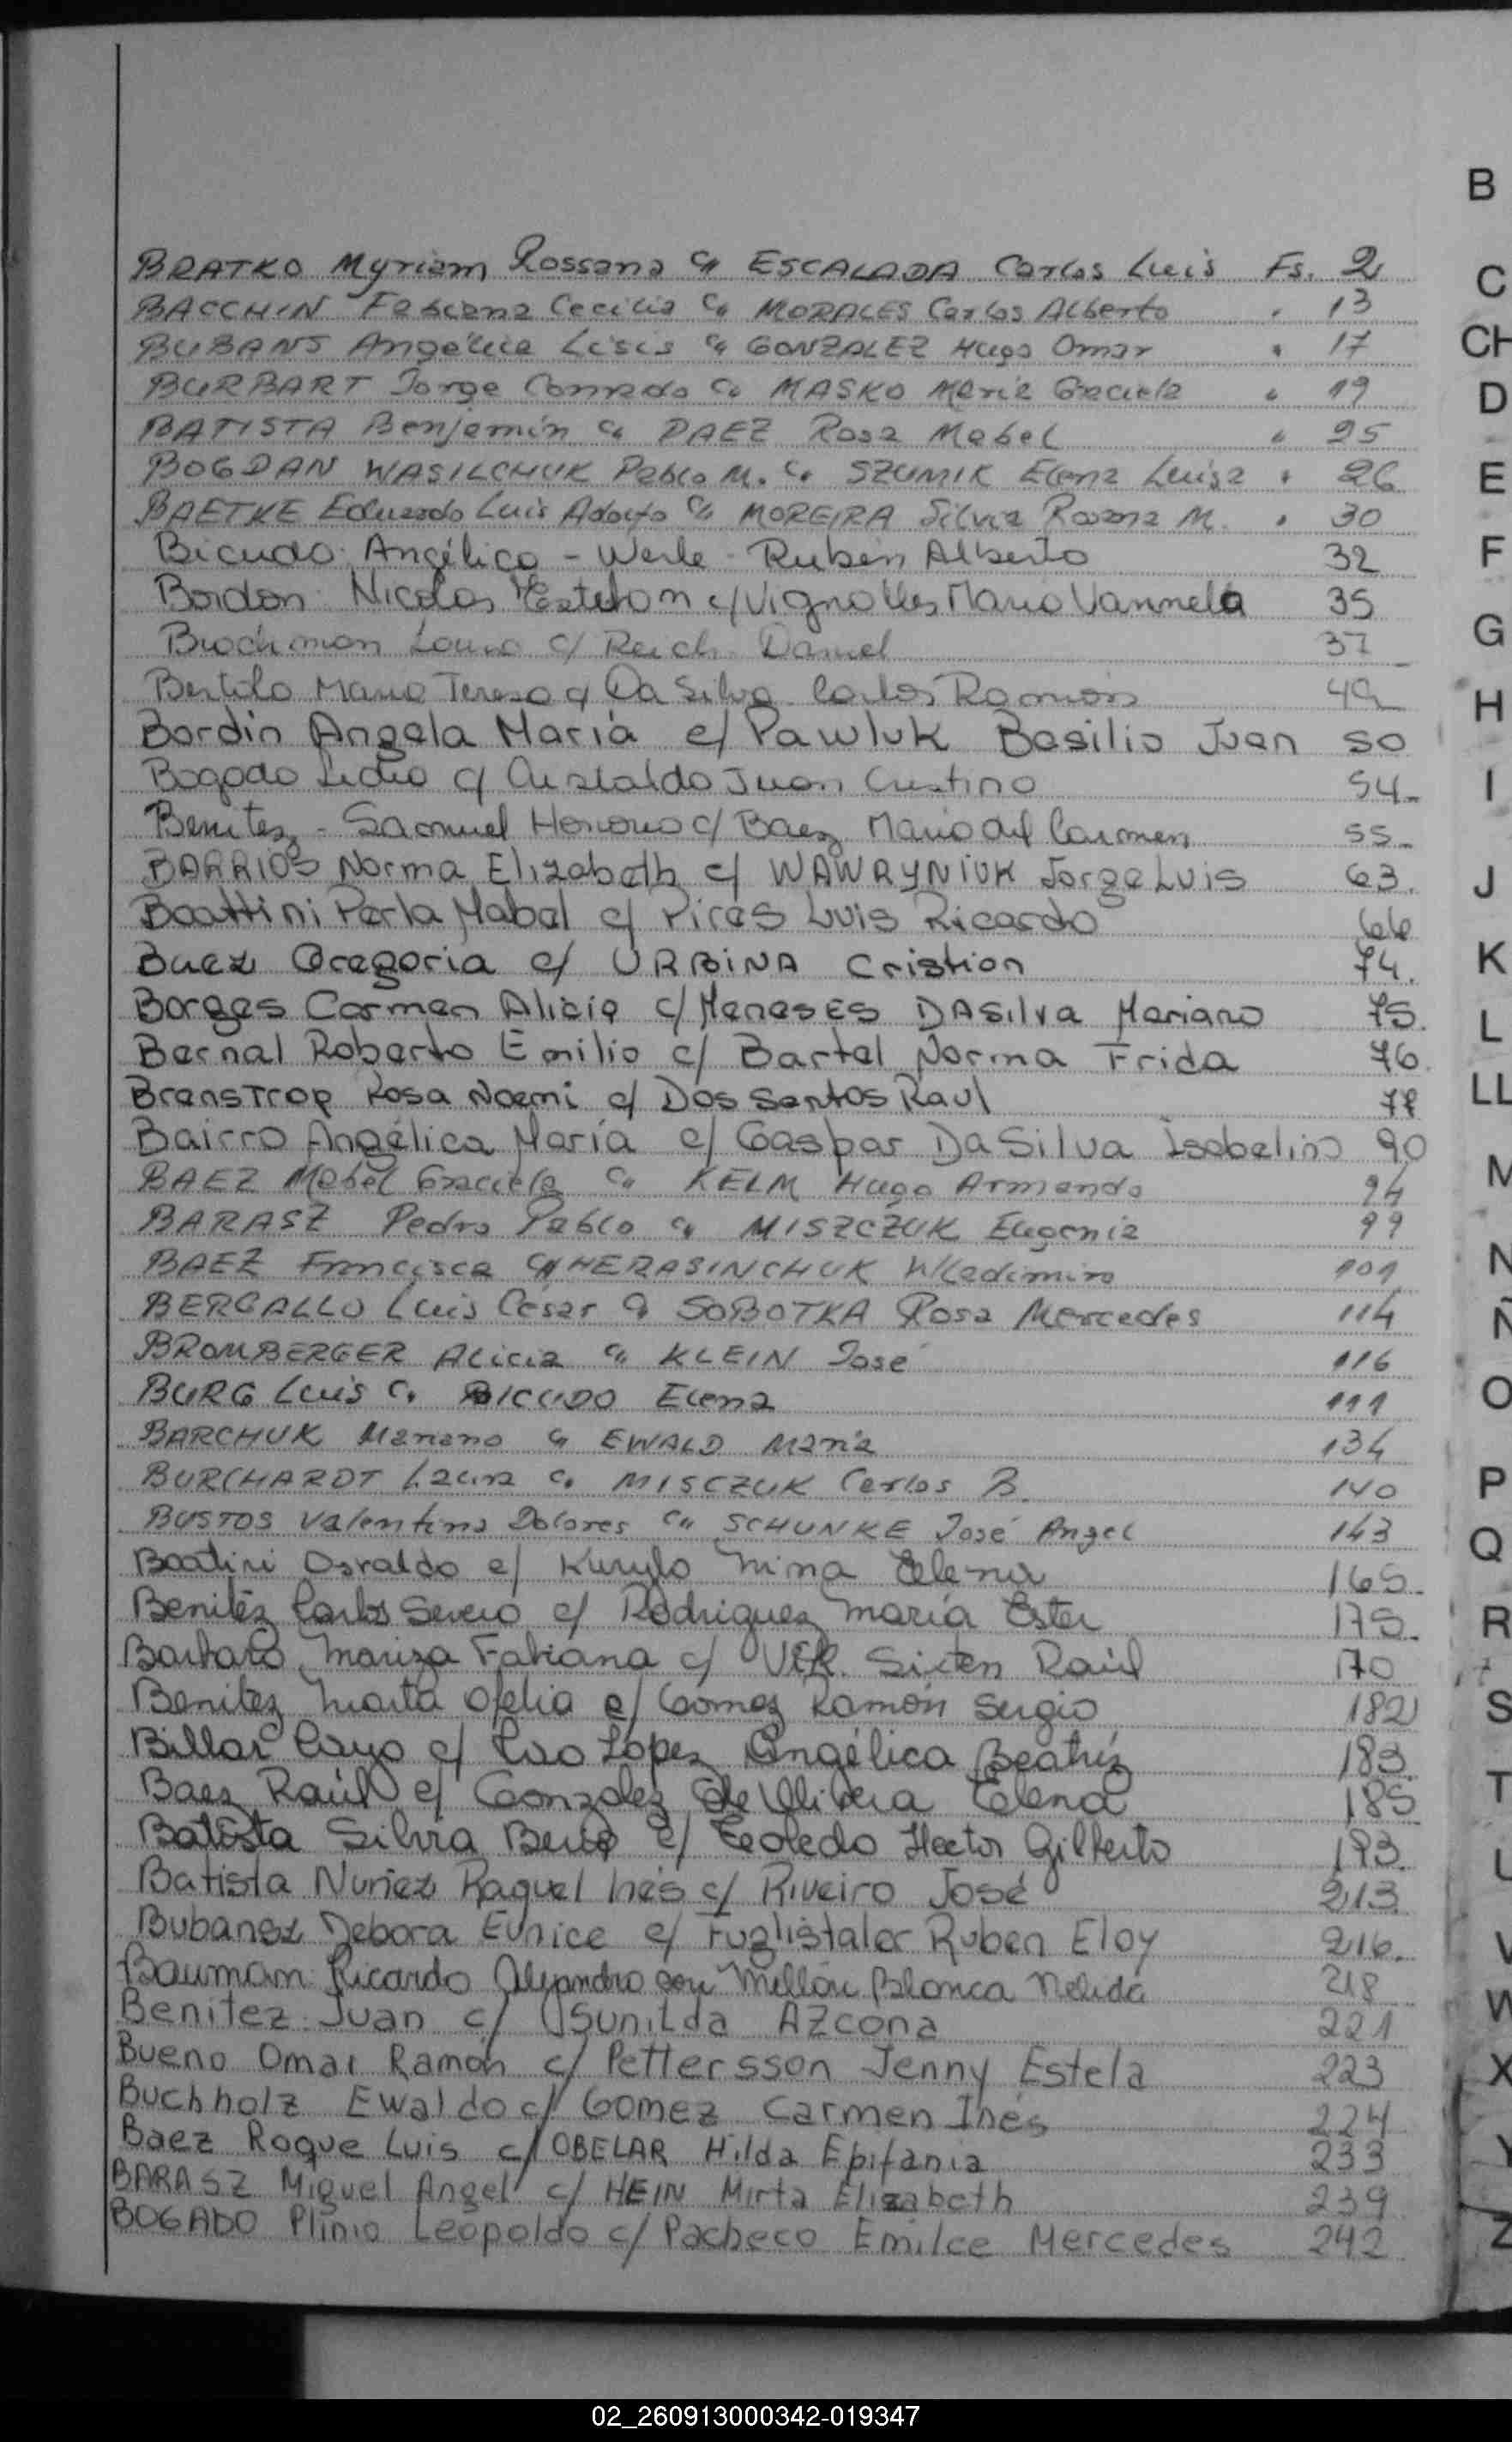 BRATKO Myriam Rossana c/ ESCALADA Carlos Luis Fs. 2
BACCHIN Fabiana Cecilia c/ MORALES Carlos Alberto " 13
BUBANS Angélica Lisis c/ GONZALEZ Hugo Omar " 17
BURBART Jorge Conrado c/ MASKO Maria Graciela " 19
BATISTA Benjamín c/ PAEZ Rosa Mabel " 25
BOGDAN WASILCHUK Pablo M. c/ SZUMIK Elena Luisa " 26
BAETKE Eduardo Luis Adolfo c/ MOREIRA Silvia Rosana M. " 30
Bicudo Angélica - Werle - Ruben Alberto 32
Bordon Nicolas Esteban c/ Vignolles Maria Vannela 35
Brochman Laura c/ Reich Daniel 37
Bertolo Maria Teresa c/ Da Silva Carlos Ramón 49
Bordin Angela María c/ Pawluk Basilio Juan 50
Bogado Lidia c/ Juan Custino 54-
Benitez - Samuel Honorio c/ Baez Maria del Carmen 55-
BARRIOS Norma Elizabeth c/ WAWRYNIUK Jorge Luis 63.
Boattini Perla Mabel c/ Pires Luis Ricardo 66
Baez Gregoria c/ URBINA Cristian 74.
Borges Carmen Alicia c/ MenesES DASilva Mariano 75.
Bernal Roberto Emilio c/ Bartel Norma Frida 76.
BransTrop Rosa Noemi c/ Dos Santos Raul
Bairro Angélica María c/ Gaspar Da Silva Isabelino 90
BAEZ Mabel Graciela c/ KELM Hugo Armando 94
BARASZ Pedro Pablo c/ MISZCZUK Eugenia 99
BAEZ Francisca c/ HERASINCHUK Wladimiro 101
BERGALLO Luis César c/ SOBOTKA Rosa Mercedes 114
BROMBERGER Alicia c/ KLEIN José 116
BURG Luis c/ BICUDO Elena 111
BARCHUK Mariano c/ EWALD María 134
BURCHARDT Laura c/ MISCZUK Carlos B. 140
BUSTOS Valentina Dolores c/ SCHUNKE José Angel 143
Boatini Osvaldo c/ Kurylo Nina Elena 165-
Benitez Carlos Severo c/ Rodriguez María Ester 175-
Barbaro Mariza Fabiana c/ Sixten Raúl 170
Benitez Marta Ofelia c/ Gomez Ramón Sergio 182
Billar Cayo c/ Lopez Angélica Beatriz 183
Baez Raúl c/ Gonzalez de Olivera Elena 185
Batista Silvia c/ Toledo Hector Gilberto 193
Batista Nuñez Raquel Inés c/ Riveiro José 213
Bubansz Debora Eunice c/ Fuglistaler Ruben Eloy 216.
Bauman Ricardo Alejandro con Millán Blanca Nelida 218
Benitez Juan c/ Isunilda Azcona 221
Bueno Omar Ramon c/ Pettersson Jenny Estela 223
Buchholz Ewaldo c/ Gomez Carmen Inés 224
Baez Roque Luis c/ OBELAR Hilda Epifania 233
BARASZ Miguel Angel c/ HEIN Mirta Elizabeth 239
BOGADO Plinio Leopoldo c/ Pacheco Emilce Mercedes 242
B
C
CH
D
E
F
G
H
I
J
K
L
LL
M
N
Ñ
O
P
Q
R
S
T
U
V
W
X
Y
Z
02_260913000342-019347